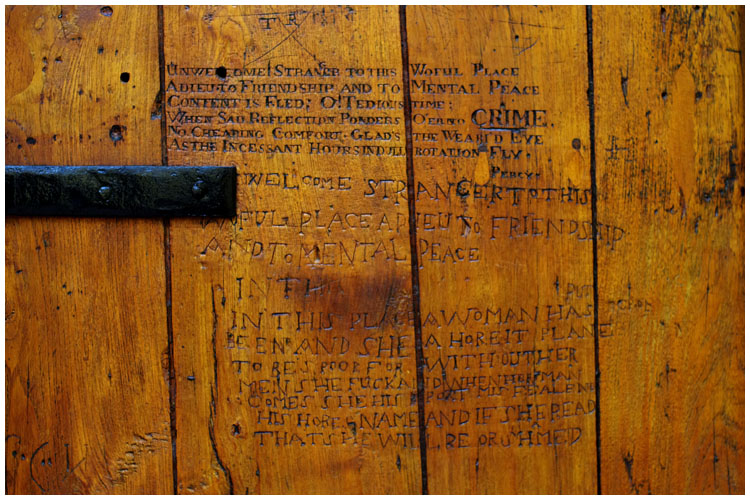 TR
UNWELCOME! STRANER TO THIS WOFUL PLACE
ADIEU TO FRIENDSHIP AND TO MENTAL PEACE
CONTENT IS FLED; O! TEDIOUS TIME:
WHEN SAD REFLECTION PONDERS OER NO CRIME.
NO CHEARING COMFORT GLAD'S THE WEARI'D EYE
AS THE INCESSANT HOURS IN DULL ROTATION FLY.
PERCY
UNWELCOME STRANGER TO THIS
WOFUL PLACE ADIEU TO FRIENDSHIP
AND TO MENTAL PEACE
IN TH
PUT
IN THIS PLACE A WOMAN HAS
BEEN AND SHE A HORE IT PLANE
TO BE S POOR FOR WITHOUT HER
MEN SHE FUCK AND WHEN HER MAN
COMES SHE HIS
HIS HORE NAME AND IF SHE READ
THAT SHE WILL BE